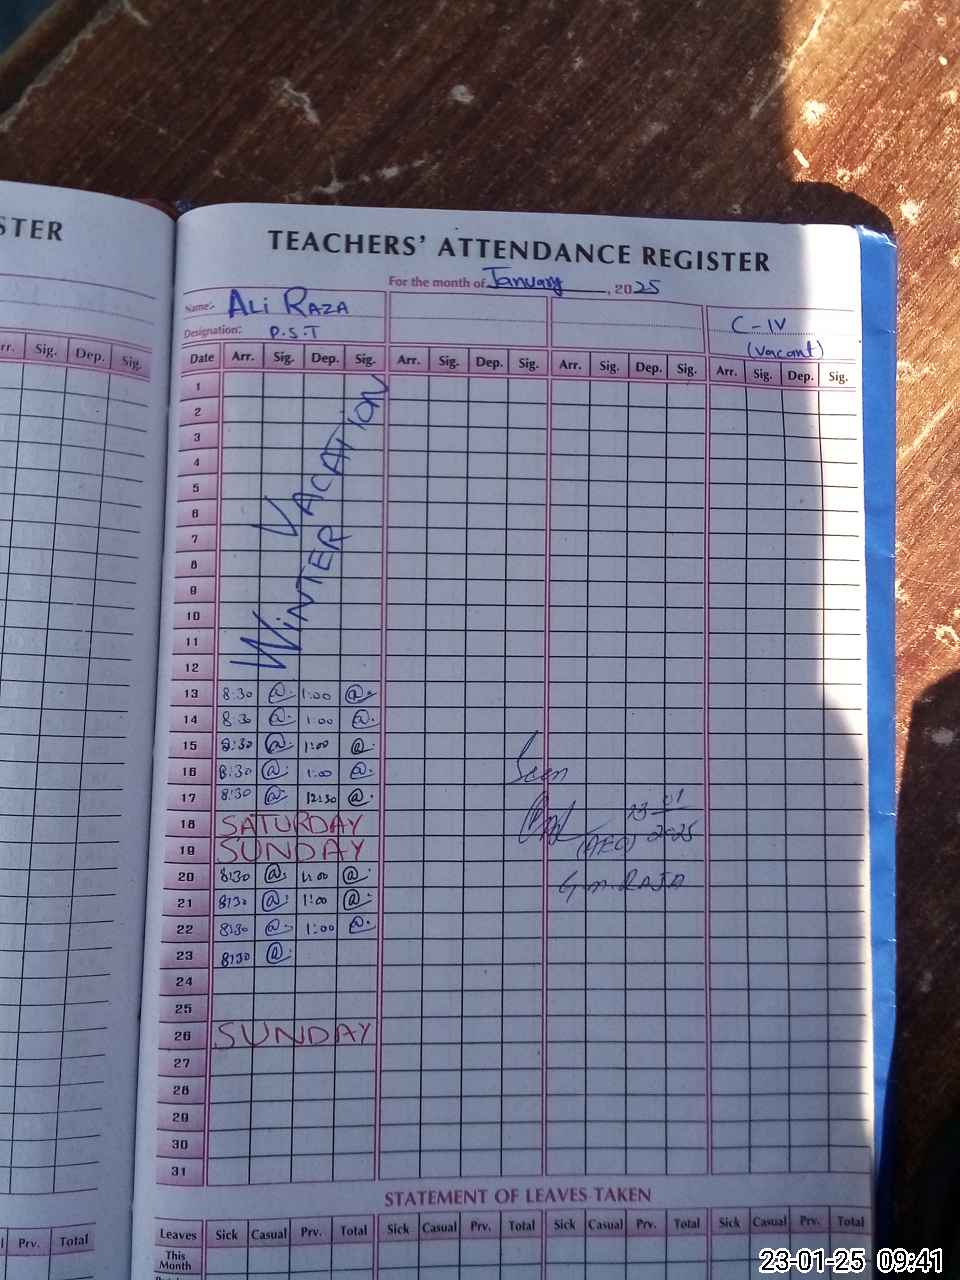 STER
TEACHERS' ATTENDANCE REGISTER
For the month of January, 2025
Name:- ALI RAZA
Designation: P.S.T
C-IV
(Vacant)
rr. Sig. Dep. Sig.
Date Arr. Sig. Dep. Sig. Arr. Sig. Dep. Sig. Arr. Sig. Dep. Sig. Arr. Sig. Dep. Sig.
1
2
3
4
5
6
7
8
9
10
11
12
WINTER VACATION
13 8:30 1:00
14 8:30 1:00
15 8:30 1:00
16 8:30 1:00
17 8:30 12:30
18 SATURDAY
19 SUNDAY
20 8:30 1:00
21 8:30 1:00
22 8:30 1:00
23 8:30
24
25
26 SUNDAY
27
28
29
30
31
Seen
23 01
2025
(AEO)
G.M. RAJA
STATEMENT OF LEAVES TAKEN
Prv. Total
Leaves Sick Casual Prv. Total Sick Casual Prv. Total Sick Casual Prv. Total Sick Casual Prv. Total
This
Month
23-01-25 09:41